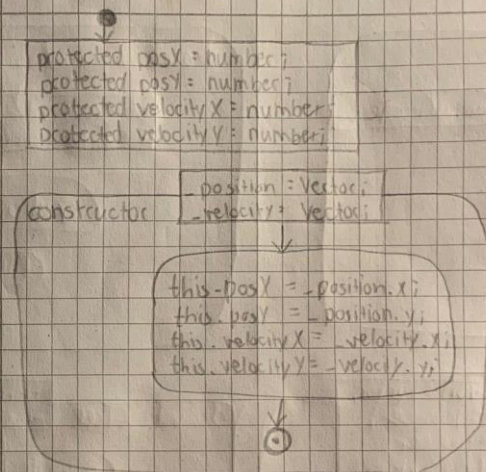 protected posX : number;
protected posY : number;
protected velocityX : number;
protected velocityY : number;
_position : Vector;
constructor
_velocity : Vector;
this.posX = _position.x;
this.posY = _position.y;
this.velocityX = _velocity.x;
this.velocityY = _velocity.y;